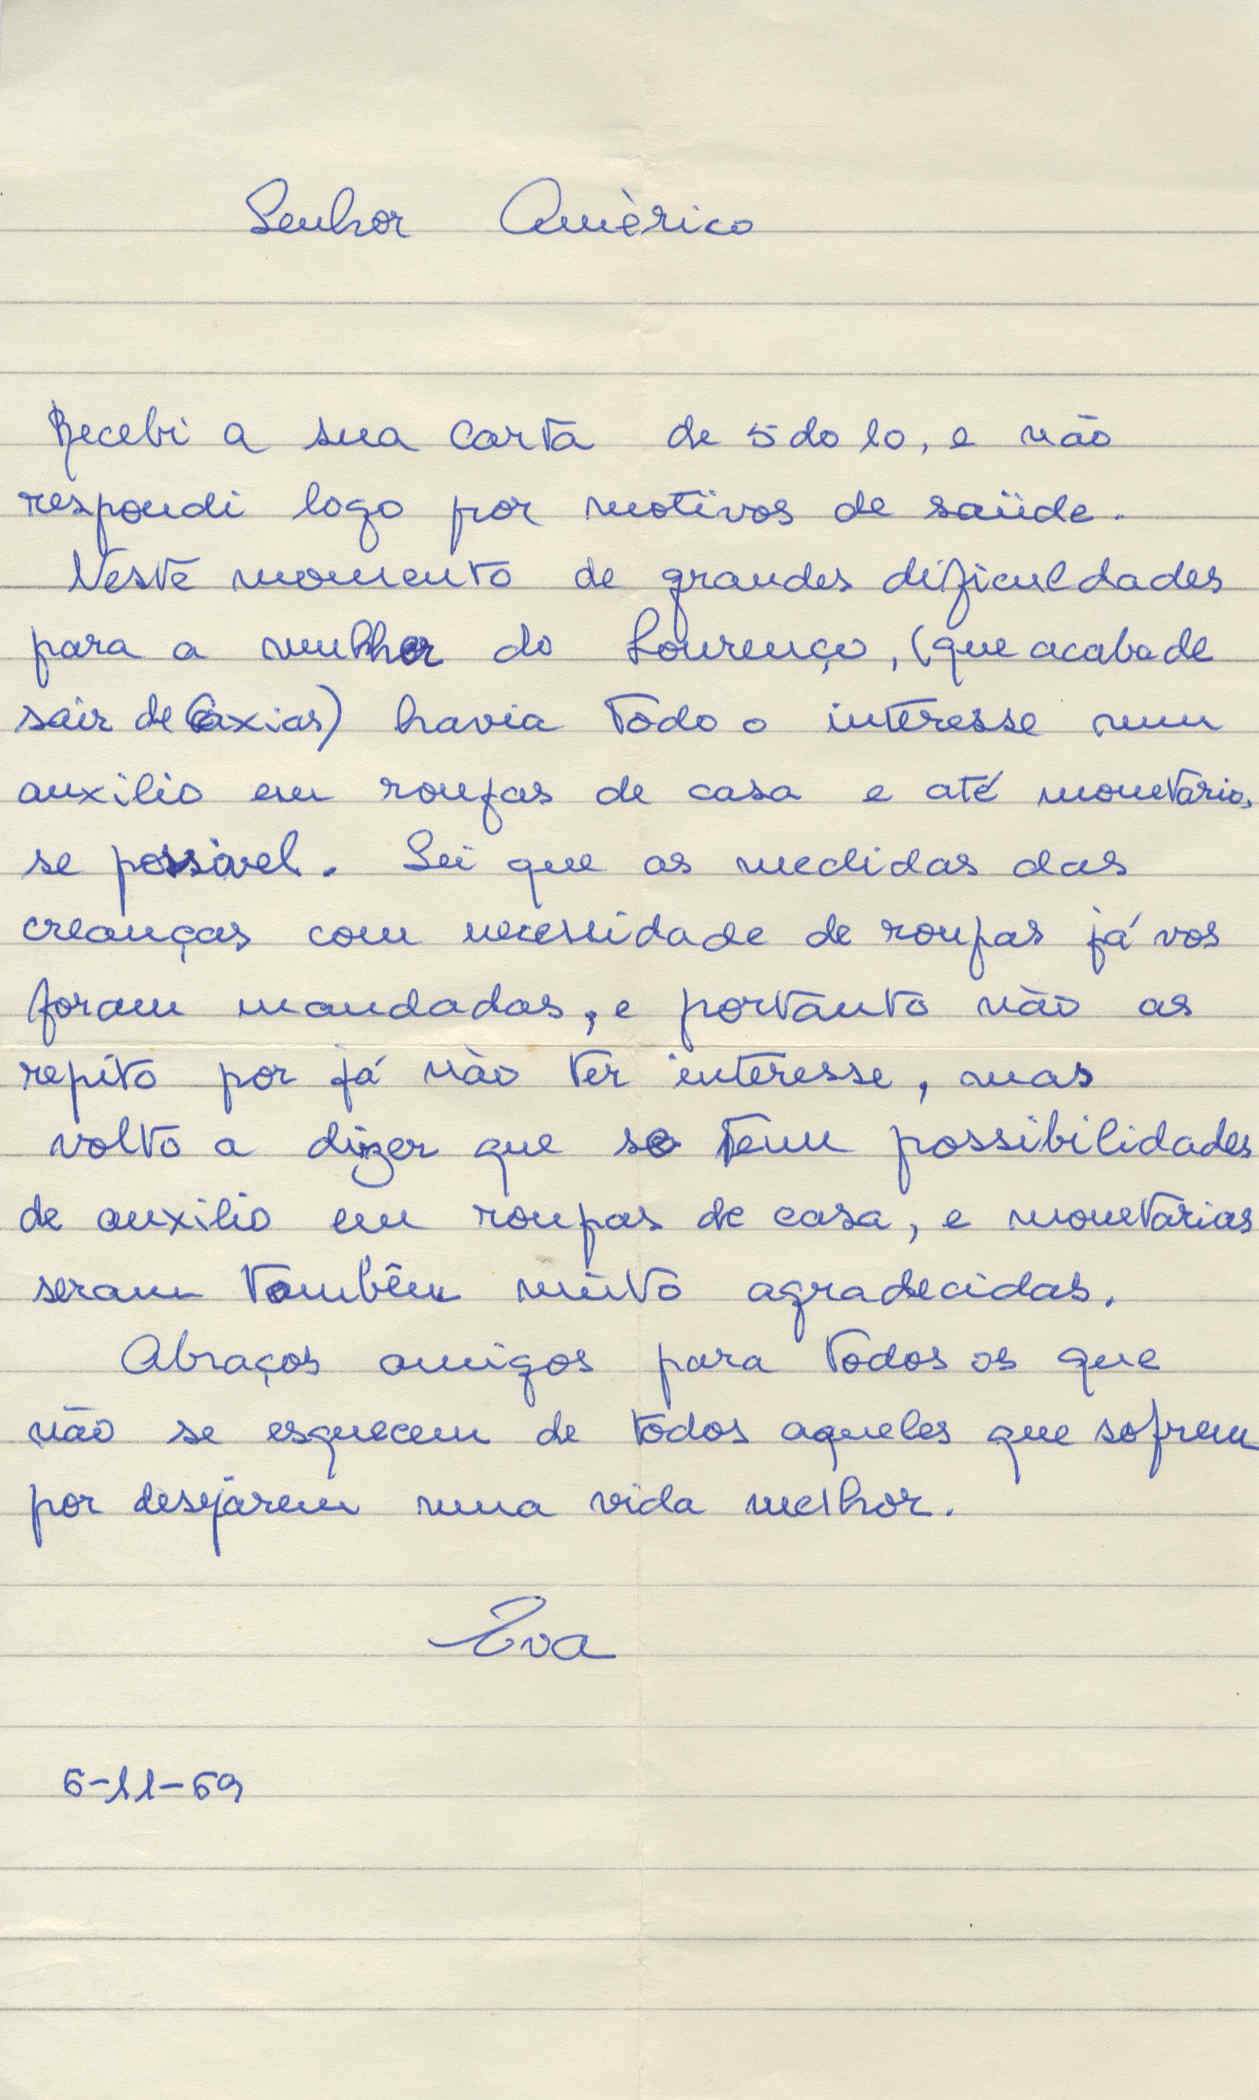 Senhor Amèrico
Recebi a sua carta de 5 do 10, e não
respondi logo por motivos de saüde.
Neste momento de grandes dificuldades
para a mulher do Lourenço, (que acaba de
sair de Caxias) havia todo o interesse num
auxilio em roupas de casa e até monetário,
se possivel. Sei que as medidas das
creanças com necessidade de roupas já vos
foram mandadas, e portanto não as
repito por já não ter interesse, mas
volto a dizer que se tem possibilidades
de auxilio em roupas de casa, e monetarias
seram também muito agradecidas.
Abraços amigos para todos os que
não se esquecem de todos aqueles que sofrem
por desejarem uma vida melhor.
Eva
6-11-69